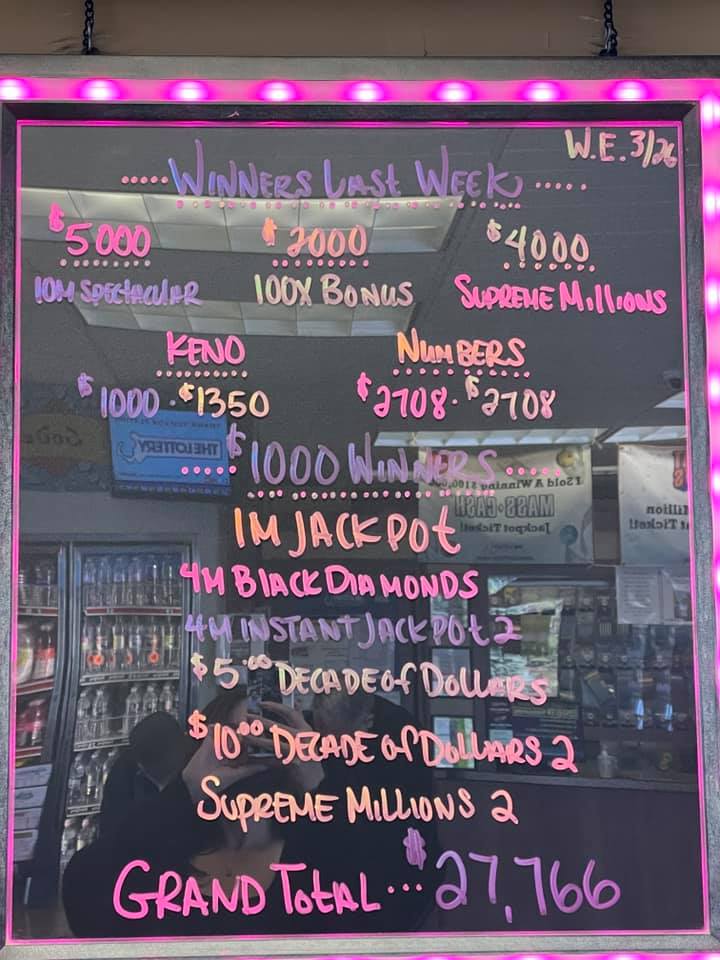 W.E. 3/26
.....WINNERS LAST WEEK.....
$5000 $2000 $4000
10M SPECTACULAR 100X BONUS SUPREME Millions
KENO NUMBERS
$1000 - $1350 $2708 - $2708
.....$1000 WINNERS.....
1M JACKPOt
4M BlACK DIAMONDS
4M INSTANT JACKPOt 2
$5.00 DECADE of DOLLARS
$10.00 DECADE of DOLLARS 2
SUPREME MILLIONS 2
GRAND TOtAL...$27,766
THE LOTTERY
I Sold A Winning $100,000
MASS CASH
Jackpot Ticket!